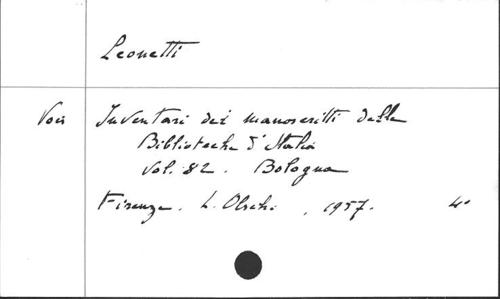 Leonetti
Voir Inventari dei manoscritti delle
Biblioteche d'Italia
vol. 82. Bologna
Firenze. L. Olschki, 1957. 4°